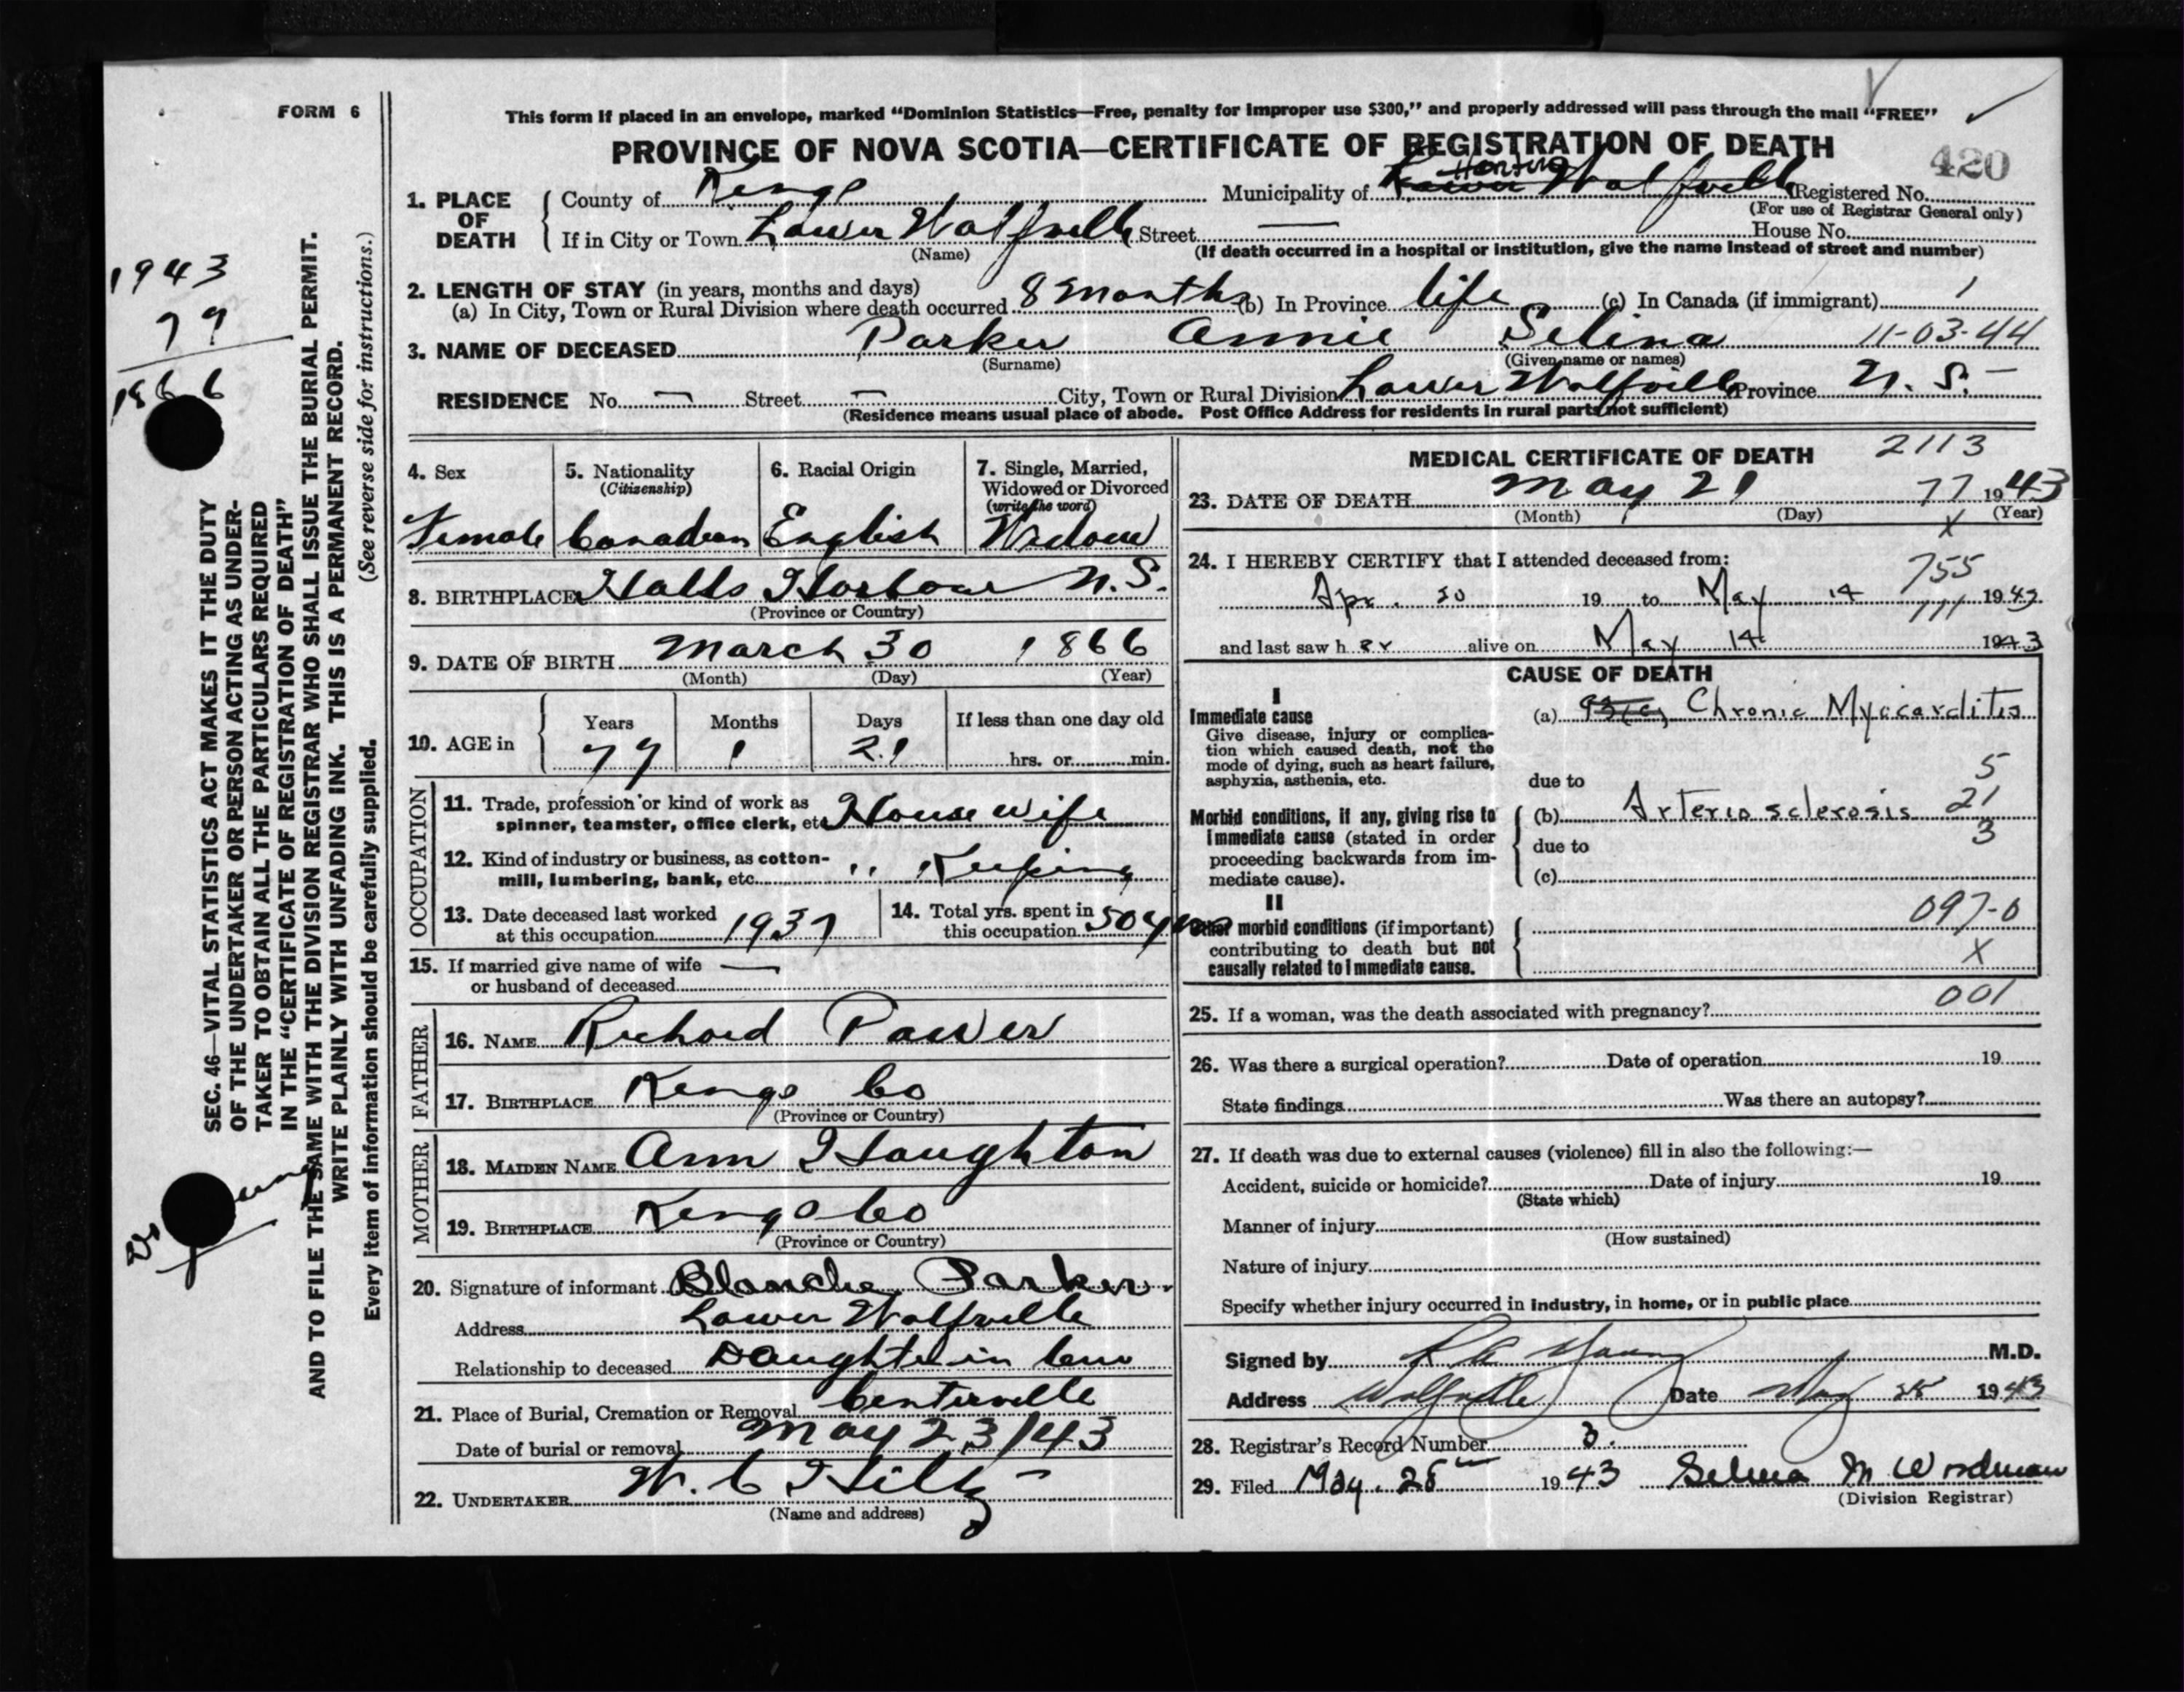 FORM 6
This form if placed in an envelope, marked “Dominion Statistics—Free, penalty for improper use $300,” and properly addressed will pass through the mail “FREE”
PROVINCE OF NOVA SCOTIA—CERTIFICATE OF REGISTRATION OF DEATH
420
1. PLACE OF DEATH
County of Kings Municipality of Wolfville Registered No.
(For use of Registrar General only)
If in City or Town Lower Wolfville Street — House No.
(Name) (If death occurred in a hospital or institution, give the name instead of street and number)
2. LENGTH OF STAY (in years, months and days)
(a) In City, Town or Rural Division where death occurred 8 months (b) In Province life (c) In Canada (if immigrant)
3. NAME OF DECEASED Parker Annie Selina 11-03-44
(Surname) (Given name or names)
RESIDENCE No. — Street — City, Town or Rural Division Lower Wolfville Province N. S.
(Residence means usual place of abode. Post Office Address for residents in rural parts not sufficient)
1943
77
1866
SEC. 46—VITAL STATISTICS ACT MAKES IT THE DUTY
OF THE UNDERTAKER OR PERSON ACTING AS UNDER-
TAKER TO OBTAIN ALL THE PARTICULARS REQUIRED
IN THE “CERTIFICATE OF REGISTRATION OF DEATH”
AND TO FILE THE SAME WITH THE DIVISION REGISTRAR WHO SHALL ISSUE THE BURIAL PERMIT.
WRITE PLAINLY WITH UNFADING INK. THIS IS A PERMANENT RECORD.
Every item of information should be carefully supplied. (See reverse side for instructions.)
4. Sex
Female
5. Nationality
(Citizenship)
Canadian
6. Racial Origin
English
7. Single, Married,
Widowed or Divorced
(write the word)
Widow
8. BIRTHPLACE Halls Harbour N. S.
(Province or Country)
9. DATE OF BIRTH March 30 1866
(Month) (Day) (Year)
10. AGE in
Years Months Days If less than one day old
77 1 21 hrs. or min.
OCCUPATION
11. Trade, profession or kind of work as
spinner, teamster, office clerk, etc. House wife
12. Kind of industry or business, as cotton-
mill, lumbering, bank, etc. " Keeping
13. Date deceased last worked
at this occupation 1937
14. Total yrs. spent in
this occupation 50 yrs
15. If married give name of wife —
or husband of deceased
FATHER
16. NAME Richard Power
17. BIRTHPLACE Kings Co
(Province or Country)
MOTHER
18. MAIDEN NAME Ann Houghton
19. BIRTHPLACE Kings Co
(Province or Country)
20. Signature of informant Blanche Parker
Address Lower Wolfville
Relationship to deceased Daughter in law
21. Place of Burial, Cremation or Removal Centerville
Date of burial or removal May 23/43
22. UNDERTAKER W. C Hiltz
(Name and address)
MEDICAL CERTIFICATE OF DEATH 2113
23. DATE OF DEATH May 21 77 1943
(Month) (Day) (Year)
X
24. I HEREBY CERTIFY that I attended deceased from:
755
Apr. 20 19 to May 14 1943
111
and last saw her alive on May 14 1943
CAUSE OF DEATH
I
Immediate cause
Give disease, injury or complica-
tion which caused death, not the
mode of dying, such as heart failure,
asphyxia, asthenia, etc.
(a) 93(c) Chronic Myocarditis
due to 5
Morbid conditions, if any, giving rise to
immediate cause (stated in order
proceeding backwards from im-
mediate cause).
(b) Arterio sclerosis 21
due to 3
(c)
II
Other morbid conditions (if important)
contributing to death but not
causally related to immediate cause.
097-0
X
25. If a woman, was the death associated with pregnancy? 001
26. Was there a surgical operation? Date of operation 19
State findings Was there an autopsy?
27. If death was due to external causes (violence) fill in also the following:—
Accident, suicide or homicide? Date of injury 19
(State which)
Manner of injury
(How sustained)
Nature of injury
Specify whether injury occurred in industry, in home, or in public place
Signed by Young M.D.
Address Wolfville Date May 1943
28. Registrar's Record Number 3.
29. Filed May. 28 1943 Selena M Woodman
(Division Registrar)